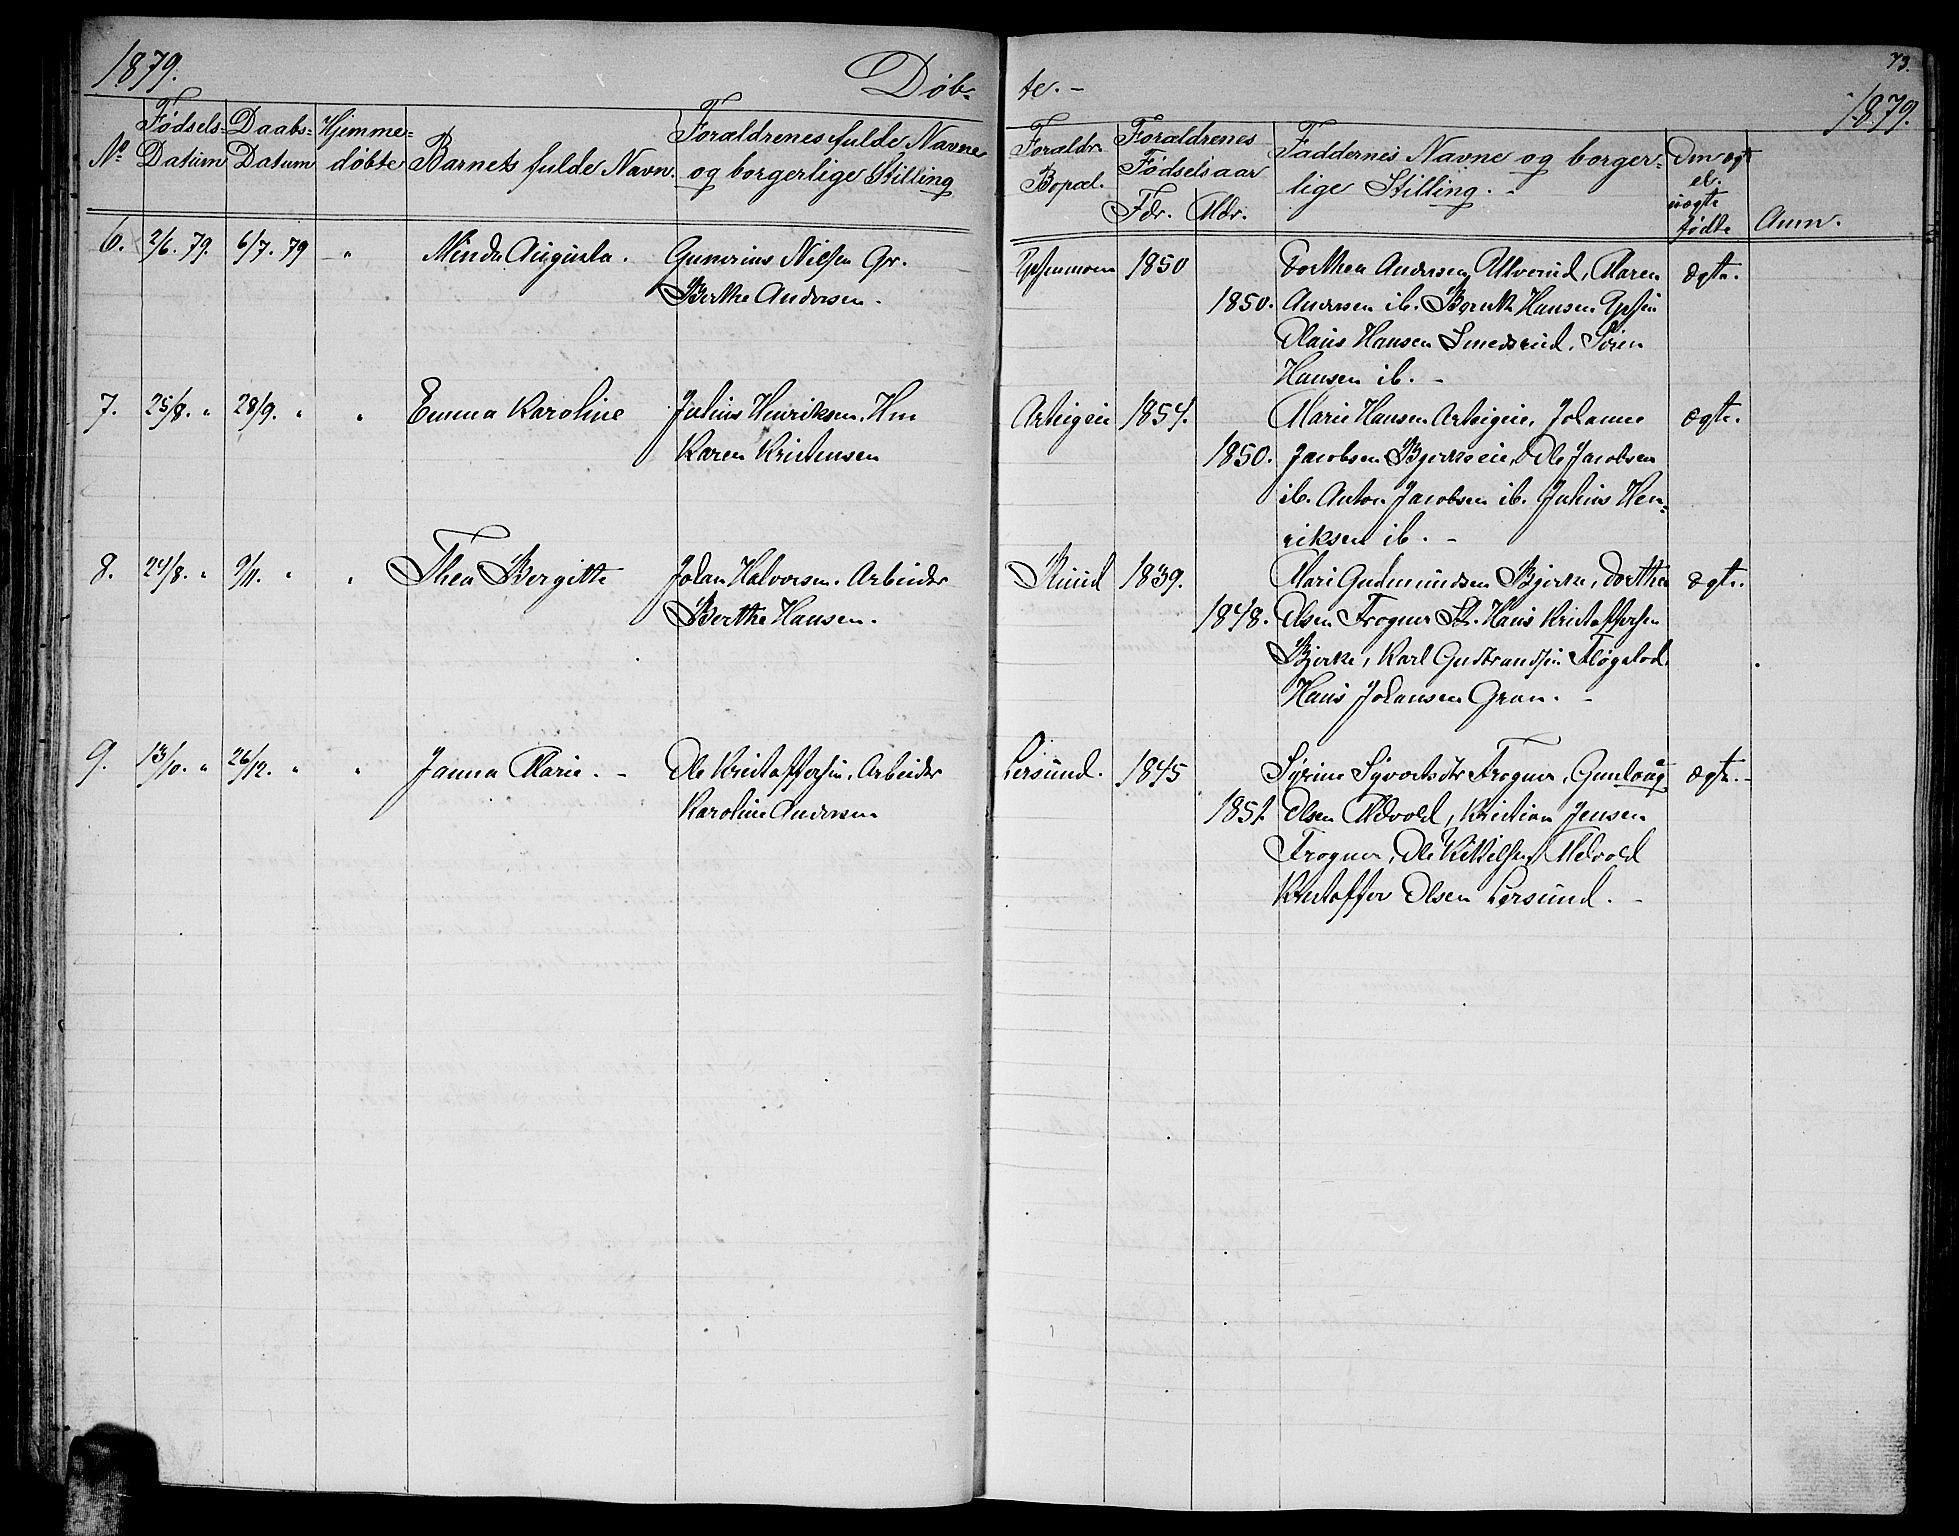 1879. Døb-
te. - 73.
1879.
No Fødsels-Datum Daabs-Datum Hjemme-døbte Barnets fulde Navn. Forældrenes fulde Navne og borgerlige Stilling
Forældr. Bopæl. Forældrenes Fødselsaar Fdr. Mdr. Faddernes Navne og borger-lige Stilling. - Om ægt. el. uægte fødte Anm.
6. 2/6. 79. 6/7. 79 " Minda Augusta. Gunerius Nilsen Gr.
Berthe Andersen.
1850 Dorthea Andersen Ulverud, Maren ægte.
1850. Andersen ib. Bernt Hansen
Olaus Hansen Smedsrud, Søren
Hansen ib. -
7. 25/8. " 28/9. " " Emma Karoline Julius Henriksen. Hm
Karen Kristensen
1854. Marie Hansen Johanne ægte.
1850. Jacobsen Bjerkeeie, Ole Jacobsen
ib. Anton Jacobsen ib. Julius Hen-
riksen ib. -
8. 24/8. " 9/11. " " Thea Bergitte Johan Halvorsen. Arbeider
Berthe Hansen.
Ruud 1839. Mari Gudmundsen Bjerke, Dorthe ægte.
1848. Olsen Frogner St. Hans Kristoffersen
Bjerke, Karl Gulbrandsen
Hans Johansen Gran. -
9. 13/10. " 26/12. " " Janna Marie. - Ole Kristoffersen. Arbeider
Karoline Andersen
Lersund. 1845 Syrine Syvertsdtr Frogner, Gunloug ægte. -
1851 Olsen Melvold, Kristian Jensen
Frogner, Ole Kittilsen Melvold
Kristoffer Olsen Lersund. -